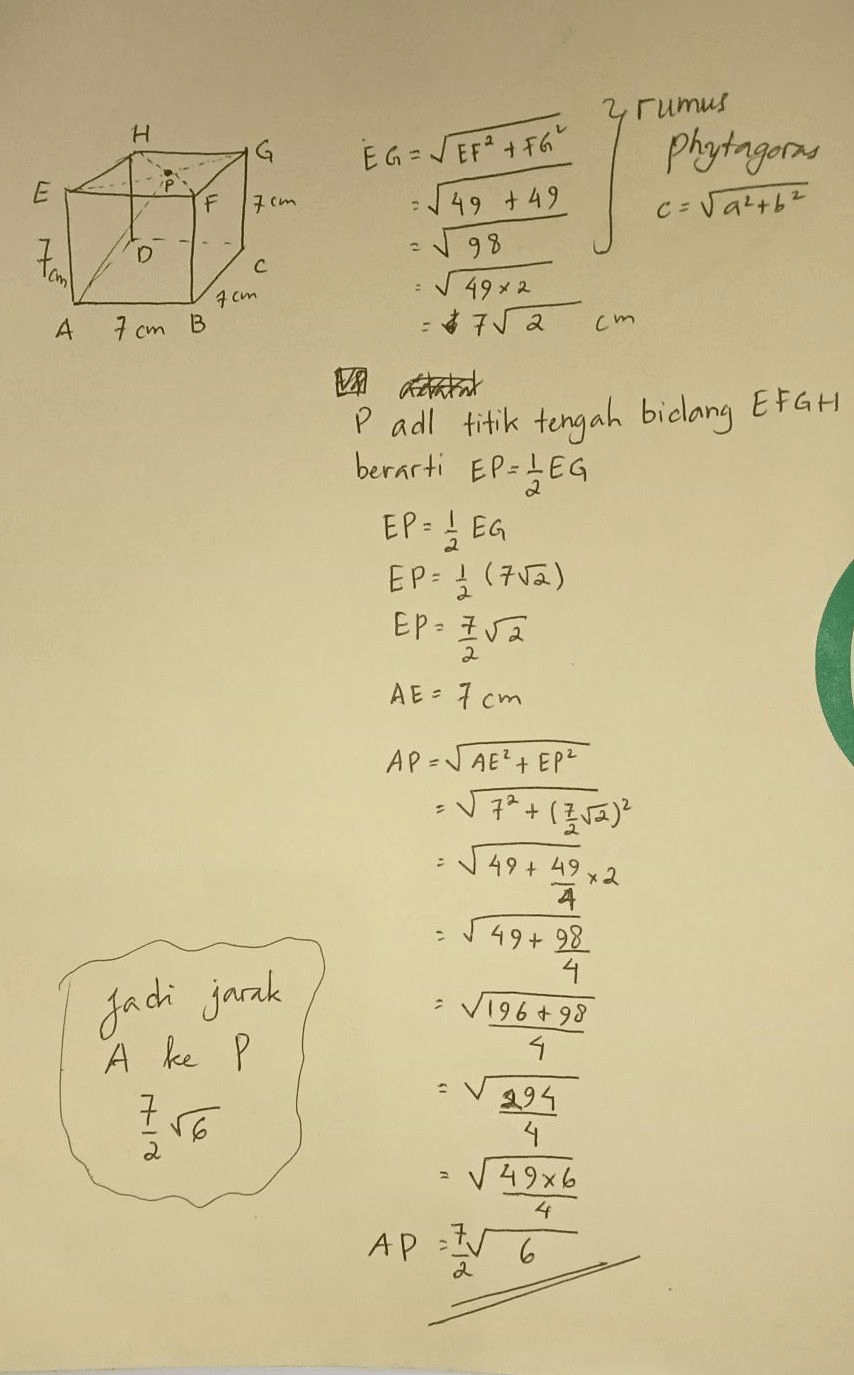 H
G
E
P
F
7 cm
7 cm
D
C
7 cm
A 7 cm B
EG = √EF² + FG²
= √49 + 49
= √98
= √49 × 2
= 7√2 cm
rumus
phytagoras
c = √a² + b²
P adl titik tengah bidang EFGH
berarti EP = 1/2 EG
EP = 1/2 EG
EP = 1/2 (7√2)
EP = 7/2 √2
AE = 7 cm
AP = √AE² + EP²
= √7² + (7/2 √2)²
= √49 + 49/4 × 2
= √49 + 98/4
= √(196 + 98)/4
= √294/4
= √(49×6)/4
AP = 7/2 √6
Jadi jarak
A ke P
7/2 √6